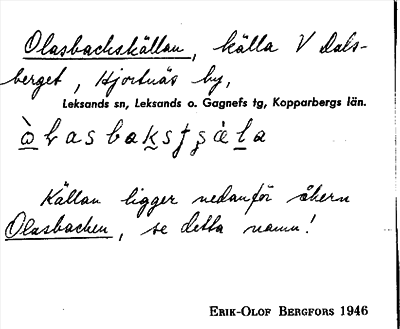 Olasbackskällan, källa V Dals-
berget, Hjortnäs by,
Leksands sn, Leksands o. Gagnefs tg, Kopparbergs län.
Källan ligger nedanför åkern
Olasbacken, se detta namn!
ERIK-OLOF BERGFORS 1946